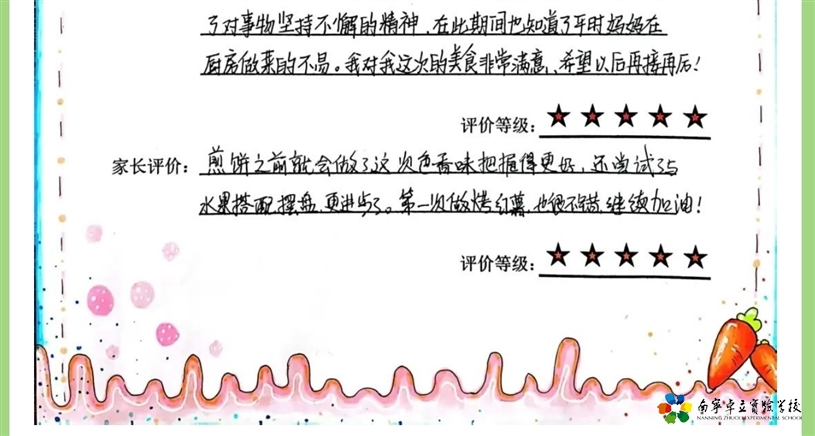 了对事物坚持不懈的精神，在此期间也知道了平时妈妈在
厨房做菜的不易。我对我这次的美食非常满意，希望以后再接再后！
评价等级：★★★★★
家长评价：煎饼之前就会做了这次色香味把握得更好，还尝试了与
水果搭配摆盘，更进步了。第一次做烤红薯，也很不错，继续加油！
评价等级：★★★★★
南宁卓立实验学校
NANNING ZHUOLI EXPERIMENTAL SCHOOL